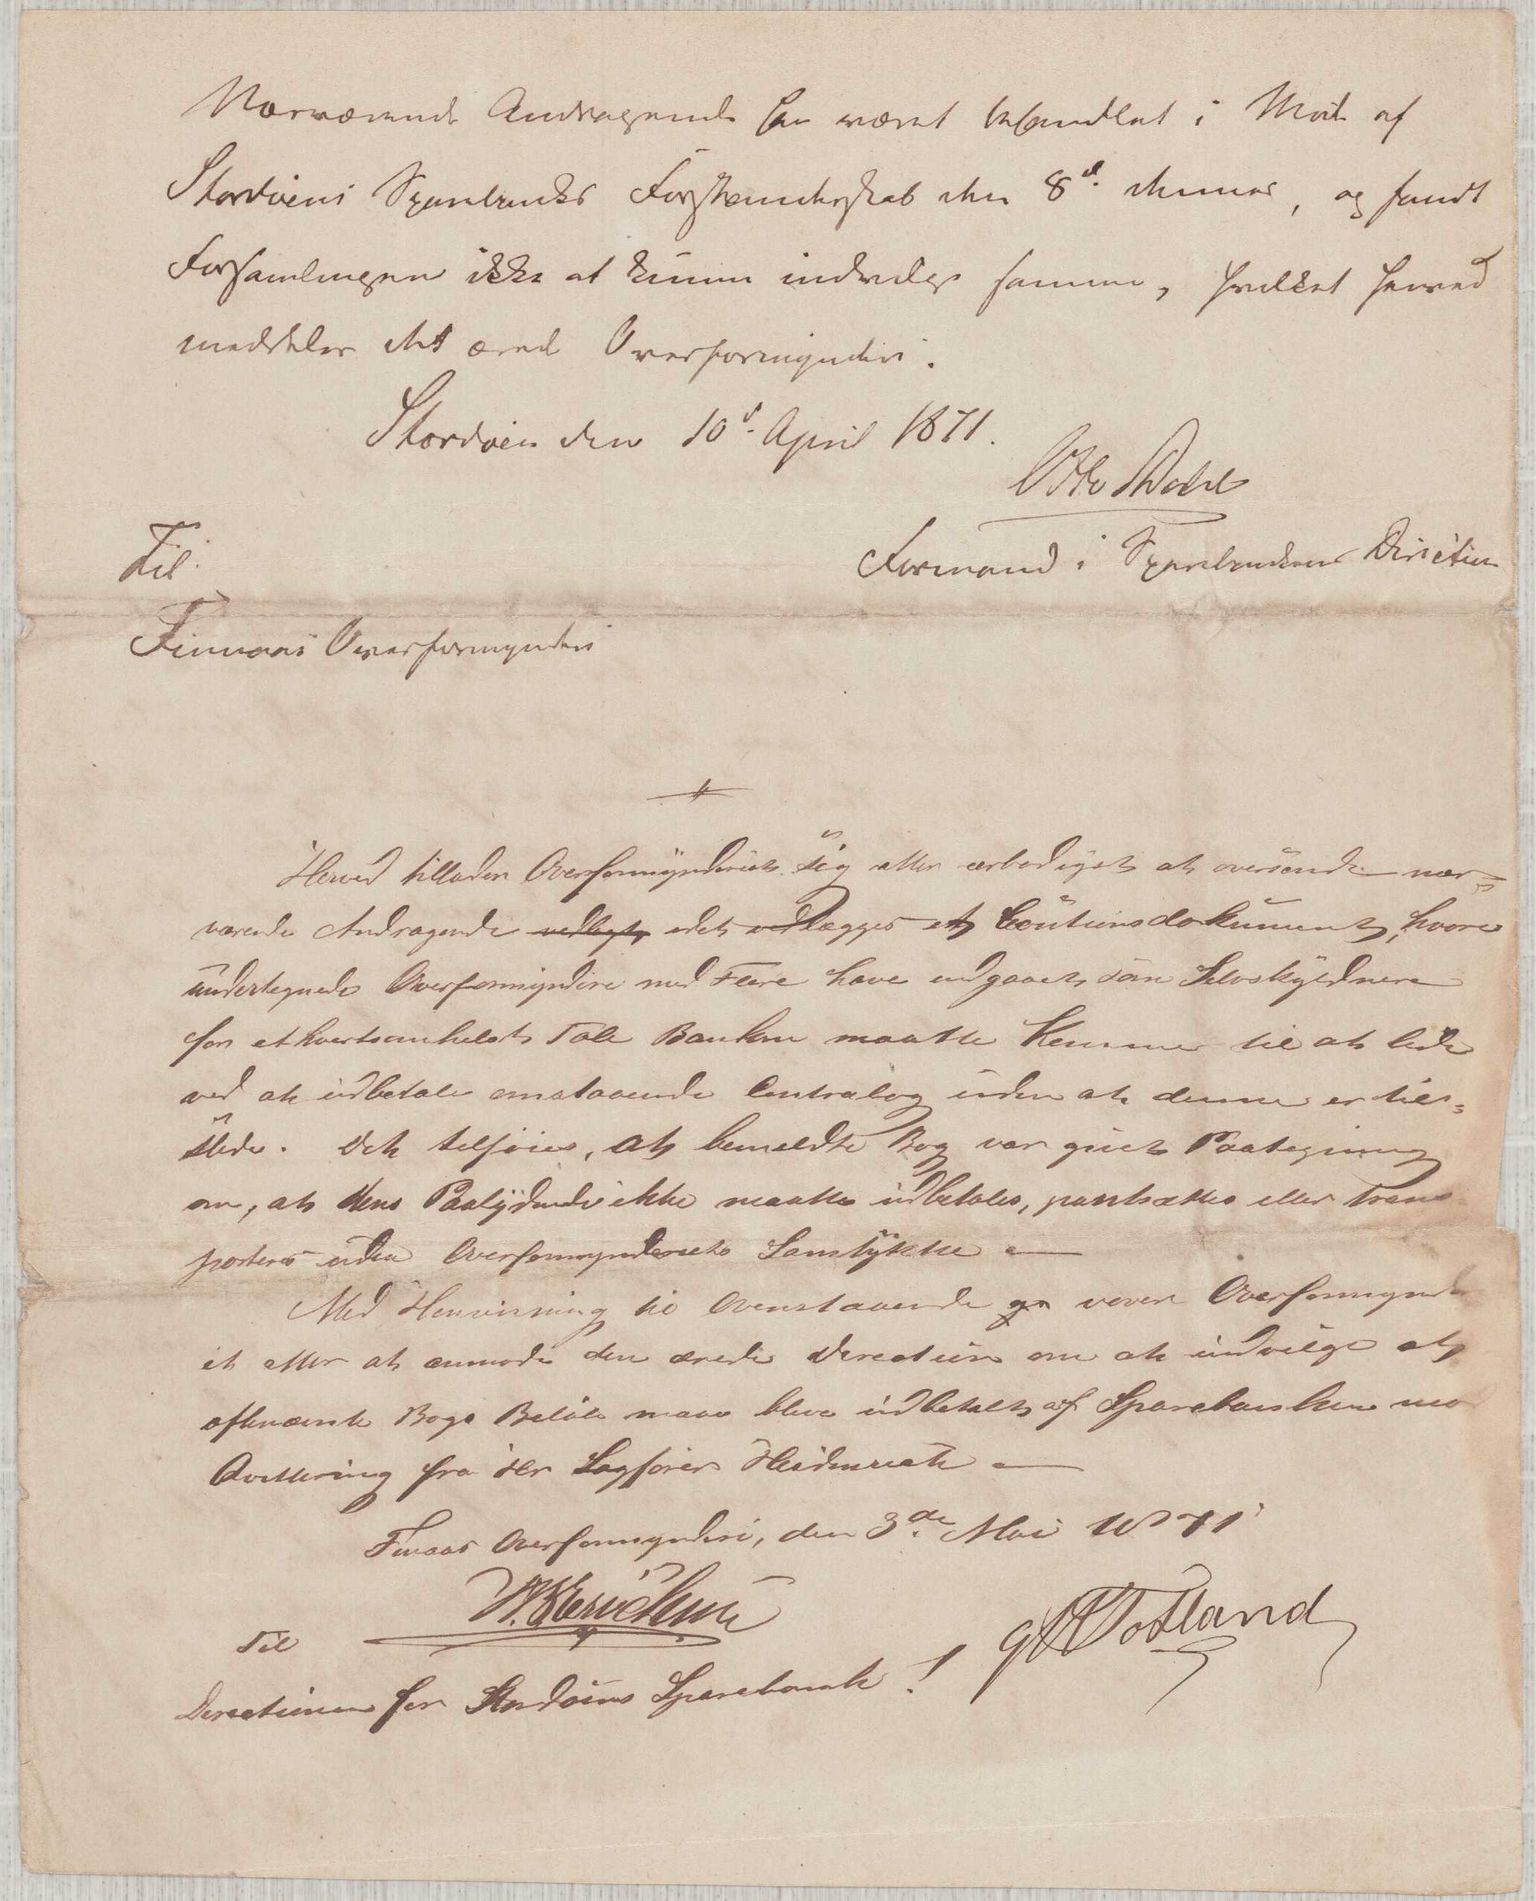 Nærværende Andragende har været behandlet i Møde af
Stordøens Sparebanks Forstanderskab den 8d. dennes, og fandt
Forsamlingen ikke at kunne indvilge samme, hvilket herved
meddeles det ærede Overformynderi.
Stordøen den 10d. April 1871.
Otto
Formand i Sparebankens Direction
Til
Finnaas Overformynderi
Herved tillader Overformynderiet sig atter ærbødigst at oversende nær=
værende Andragende vedlagt idet vedlægges et Coutionsdokument, hvore
undertegnede Overformyndere med Flere have indgaaet som Selvskyldnere
for ethvertsomhelst Tab Banken maatte komme til at lide
ved at udbetale omstaaende Contrabog uden at denne er til=
stede. Det tilføies, at bemeldte Bog var givet Paategning
om, at dens Paalydende ikke maatte udbetales, pantsættes eller trans
porteres uden Overformynderiets Samtykke —
Med Henvisning til Ovenstaaende vover Overformynderi
et atter at anmode den ærede Direction om at indvilge at
oftnævnte Bogs Beløb maa blive udbetalt af Sparebanken mod
Qvittering fra Hr Sagfører Heidenreich —
Finaas Overformynderi, den 3de Mai 1871
Totland
Til
Directionen for Stordøens Sparebank!